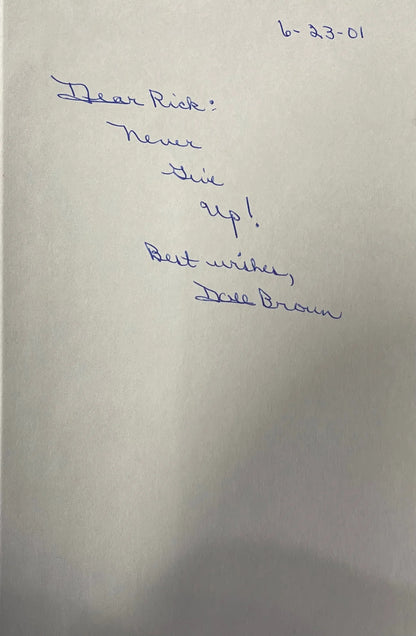 6-23-01
Dear Rick:
Never
Give
Up!
Best wishes,
Dale Brown